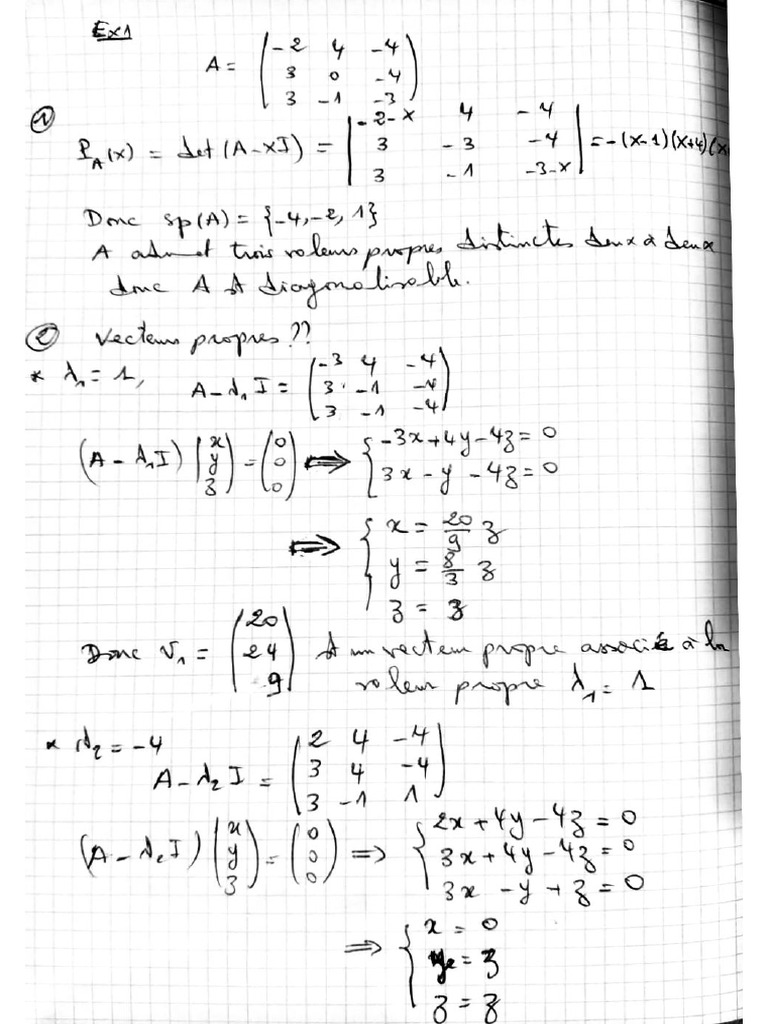 Ex1
A = (-2 4 -4
3 0 -4
3 -1 -3)
①
P_A(x) = det(A-XI) = |-2-x 4 -4
3 -3 -4
3 -1 -3-x| = -(x-1)(x+4)(x
Donc sp(A) = {-4,-2, 1}
A admet trois valeurs propres distinctes deux à deux
donc A est diagonalisable.
② Vecteurs propres ??
* λ₁ = 1, A-λ₁I = (-3 4 -4
3 -1 -4
3 -1 -4)
(A-λ₁I) (x y z) = (0 0 0) ⟹ { -3x+4y-4z = 0
3x - y - 4z = 0
⟹ { x = 20/9 z
y = 8/3 z
z = z
Donc V₁ = (20 24 9) est un vecteur propre associé à la
valeur propre λ₁ = 1
* λ₂ = -4
A-λ₂I = (2 4 -4
3 4 -4
3 -1 1)
(A-λ₂I) (x y z) = (0 0 0) ⟹ { 2x+4y-4z = 0
3x+4y-4z = 0
3x - y + z = 0
⟹ { x = 0
y = z
z = z